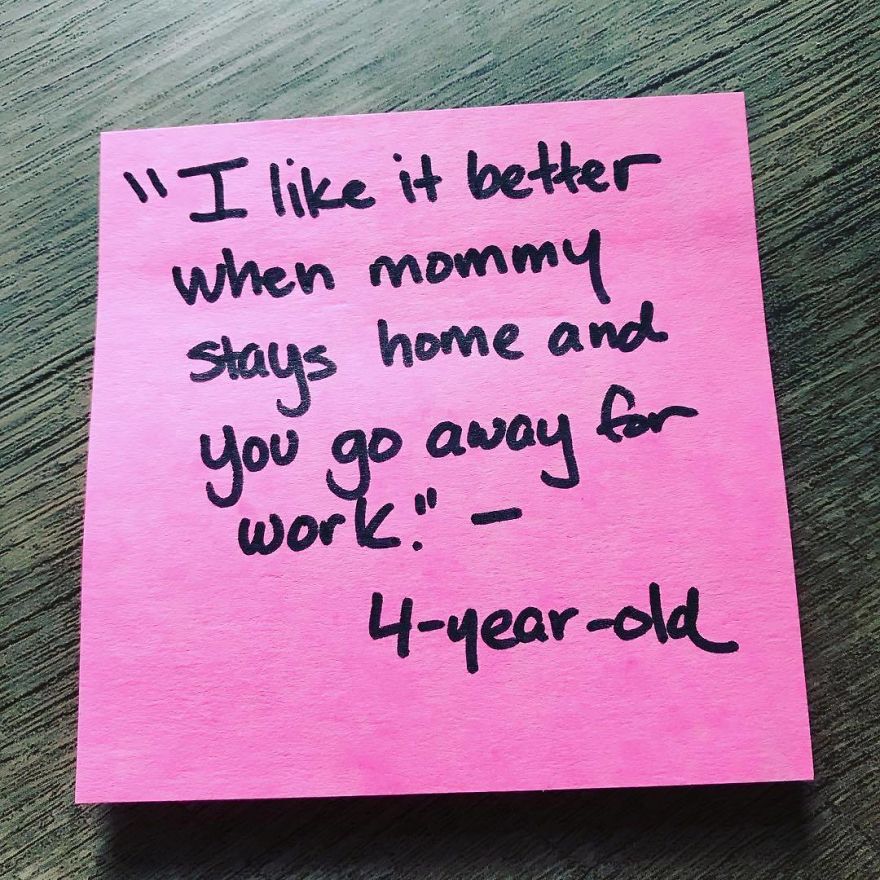 "I like it better
when mommy
stays home and
you go away for
work." –
4-year-old